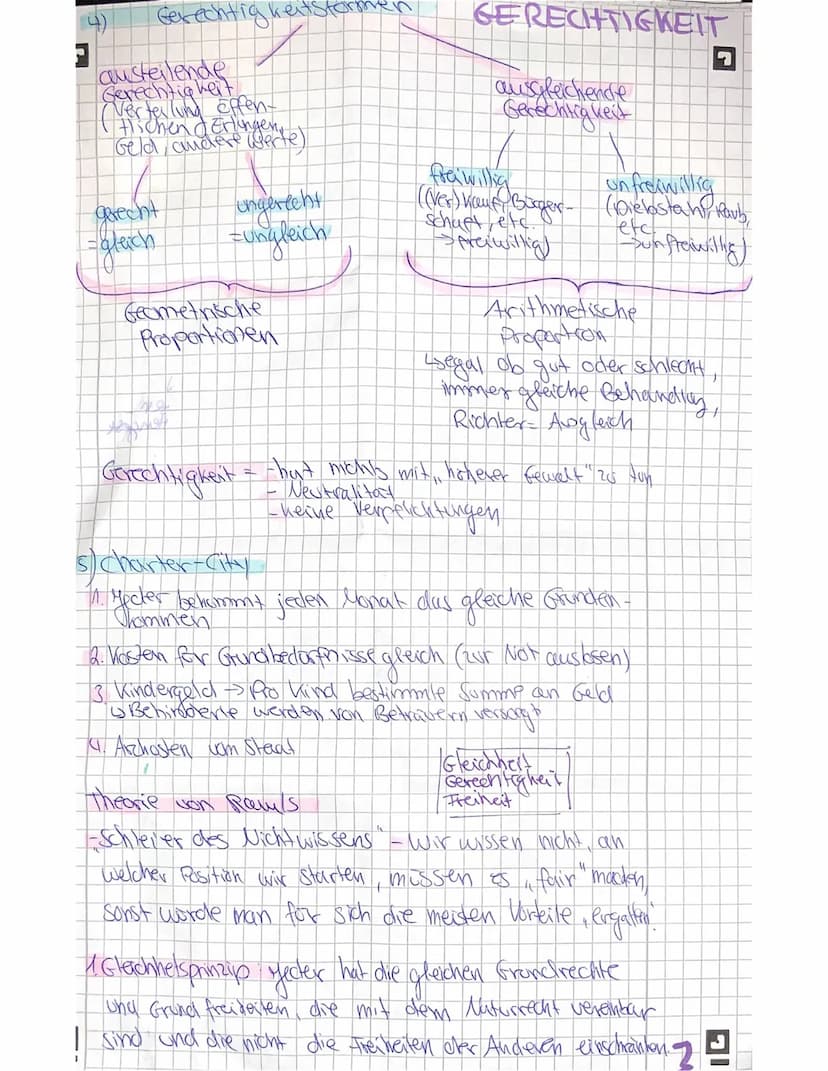 4) Gerechtigkeitsformen
GERECHTIGKEIT
austeilende
Gerechtigkeit
(Verteilung öffen-
tlichen d Erlungen,
Geld, andere Werte)
gerecht
=gleich
ungerecht
=ungleich
Geometrische
Proportionen
ausgleichende
Gerechtigkeit
freiwillig
((Ver)Kauf, Bürger-
schaft, etc.
→freiwillig)
unfreiwillig
(Diebstahl, Raub,
etc.
→unfreiwillig)
Arithmetische
Proportion
↳egal ob gut oder schlecht,
immer gleiche Behandlung,
Richter= Ausgleich
Gerechtigkeit = -hat nichts mit „höherer Gewalt" zu tun
- Neutralität
-keine Verpflichtungen
5) Charter-City
1. Jeder bekommt jeden Monat das gleiche Grundein-
kommen
2. Kosten für Grundbedürfnisse gleich (zur Not auslosen)
3. Kindergeld → Pro Kind bestimmte Summe an Geld
↳ Behinderte werden von Betreuern versorgt
4. Arztkosten vom Staat
Gleichheit
Gerechtigkeit
Freiheit
Theorie von Rawls
-„Schleier des Nichtwissens" - Wir wissen nicht, an
welcher Position wir starten, müssen es „fair" machen,
sonst würde man für sich die meisten Vorteile „ergattern"
1. Gleichheitsprinzip: Jeder hat die gleichen Grundrechte
und Grundfreiheiten, die mit dem Naturrecht vereinbar
sind und die nicht die Freiheiten der Anderen einschränken.
2